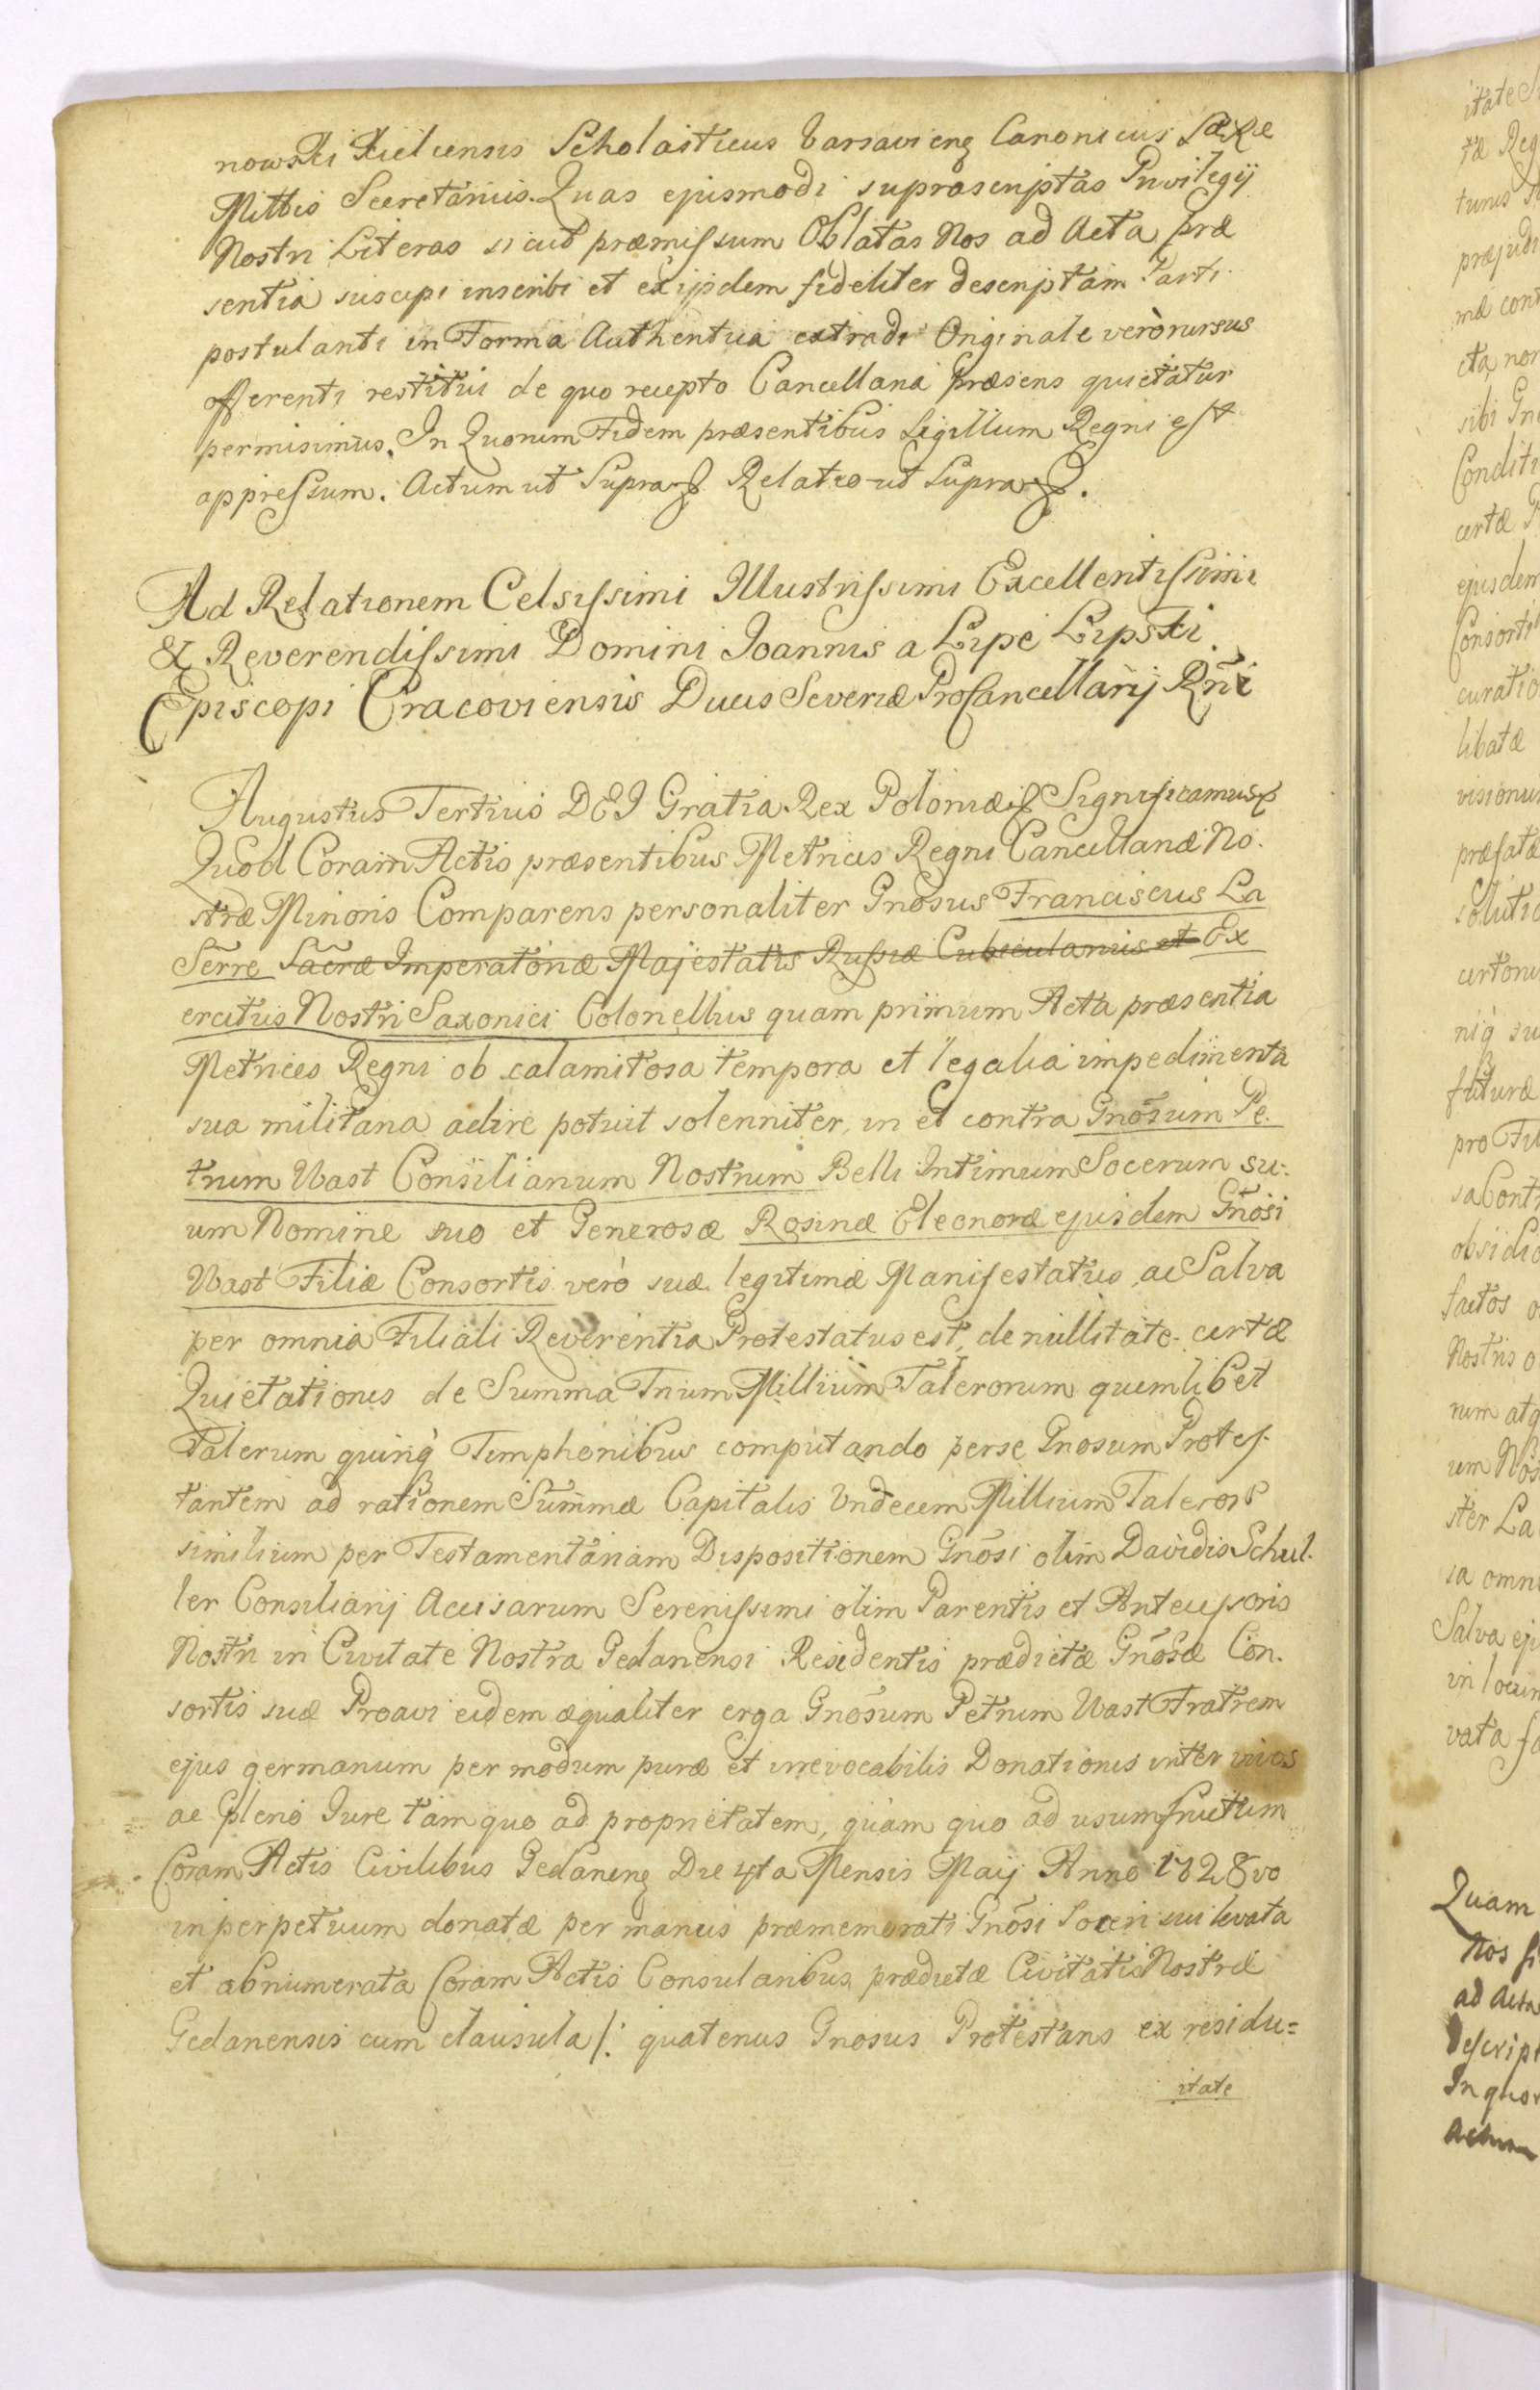 nowski Kielcensis Scholasticus Varsavieng Canonicus SæRæ
Mittis Secretarius. Quas ejusmodi suprascriptas Privilegij
Nostri Literas sicut præmissum Oblatas Nos ad Acta præ
sentia suscipi inscribi et ex ijsdem fideliter descriptam Parti
postulanti in Forma Authentica extradi Originale verò rursus
offerenti restitui de quo recepto Cancellaria præsens quietatur
permisimus. In Quorum Fidem præsentibus Sigillum Regni est
appressum. Actum ut Supra Relatio ut Supra.
Ad Relationem Celsissimi Illustrissimi Excellentissimi
& Reverendissimi Domini Joannis a Lipe Lipski
Episcopi Cracoviensis Ducis Severiæ ProCancellarij Rñi
Augustus Tertius DEI Gratia Rex Poloniæ Significamus
Quod Coram Actis præsentibus Metrices Regni Cancellariæ No.
stræ Minoris Comparens personaliter Gnosus Franciscus La
Serre Sacræ Imperatoriæ Majestatis Russiæ Cubicularius et Ex
ercitus Nostri Saxonici Colonellus quam primum Acta præsentia
Metrices Regni ob calamitosa tempora et legalia impedimenta
sua militaria adire potuit solenniter, in et contra Gnõsum Pe.
trum Uast Consiliarium Nostrum Belli Intimum Socerum su.
um Nomine suo et Generosæ Rosinæ Eleonoræ ejusdem Gñosi
Uast Filiæ Consortis verò suæ legitimæ Manifestatus ac Salva
per omnia Filiali Reverentia Protestatus est, de nullitate certæ
Quietationis de Summa Trium Millium Talerorum quemlibet
Talerum quinq̀ Timphonibus computando per se Gnosum Protes.
tantem ad rationem Summæ Capitalis Undecem Millium Taleror
similium per Testamentariam Dispositionem Gnõsi olim Davidis Schul.
ler Consiliarij Accisarum Serenissimi olim Parentis et Antecessoris
Nostri in Civitate Nostra Gedanensi Residentis prædictæ Gnõsæ Con.
sortis suæ Proavi eidem æqualiter erga Gnõsum Petrum Uast Fratrem
ejus germanum per modum puræ et irrevocabilis Donationis inter vivos
ac pleno Jure tam quo ad proprietatem, quàm quo ad usumfructum
Coram Actis Civilibus Gedaneng Die 4ta Mensis Maij Anno 1728vo
in perpetuum donatæ per manus præmemorati Gnõsi Soceri sui levata
et abnumerata Coram Actis Consularibus prædictæ Civitatis Nostræ
Gedanensis cum clausula /: quatenus Gnosus Protestans ex residu=
itate